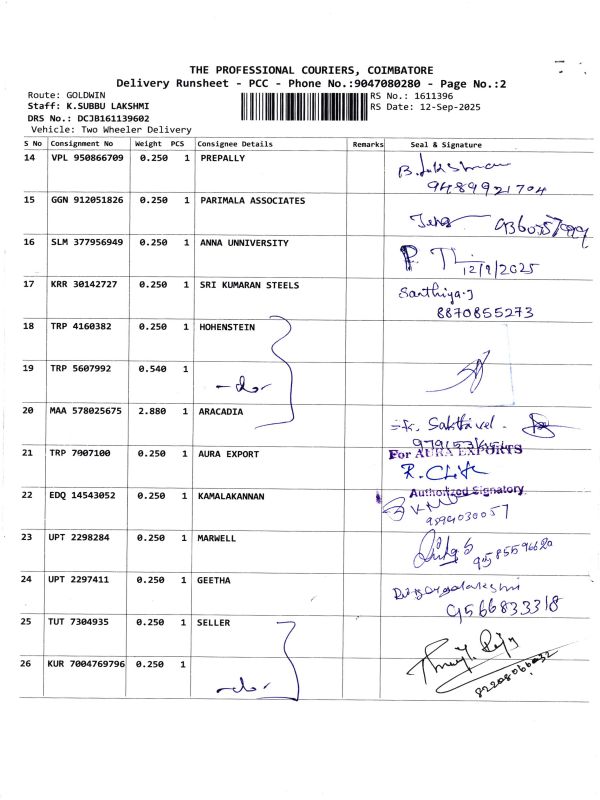 THE PROFESSIONAL COURIERS, COIMBATORE
Delivery Runsheet - PCC - Phone No.:9047080280 - Page No.:2
Route: GOLDWIN RS No.: 1611396
Staff: K.SUBBU LAKSHMI RS Date: 12-Sep-2025
DRS No.: DCJB161139602
Vehicle: Two Wheeler Delivery
S No Consignment No Weight PCS Consignee Details Remarks Seal & Signature
14 VPL 950866709 0.250 1 PREPALLY
9489921704
15 GGN 912051826 0.250 1 PARIMALA ASSOCIATES
16 SLM 377956949 0.250 1 ANNA UNNIVERSITY
12/9/2025
17 KRR 30142727 0.250 1 SRI KUMARAN STEELS Santhiya.J
8870855273
18 TRP 4160382 0.250 1 HOHENSTEIN
19 TRP 5607992 0.540 1
-do-
20 MAA 578025675 2.880 1 ARACADIA
Sakthivel.
21 TRP 7007100 0.250 1 AURA EXPORT For AURA EXPORTS
Authorized Signatory
22 EDQ 14543052 0.250 1 KAMALAKANNAN
23 UPT 2298284 0.250 1 MARWELL
24 UPT 2297411 0.250 1 GEETHA
9566833318
25 TUT 7304935 0.250 1 SELLER
26 KUR 7004769796 0.250 1
-do-